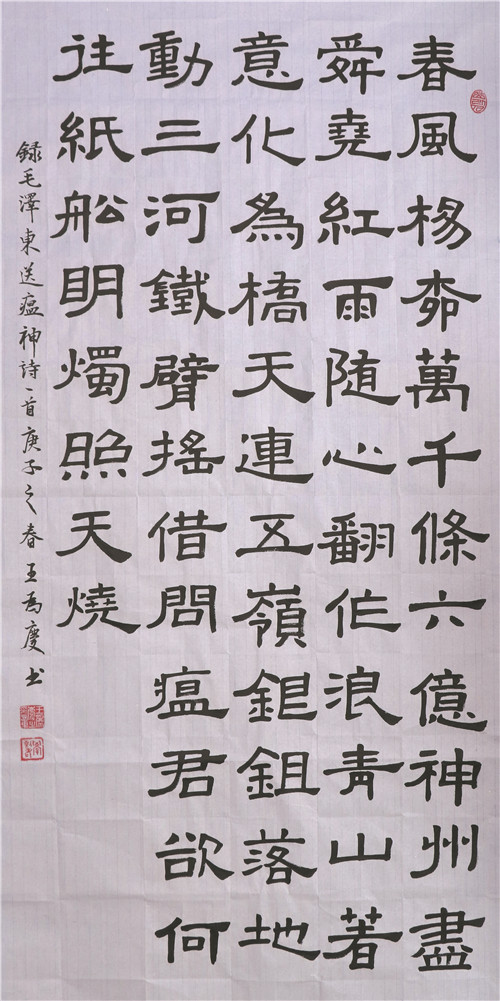 春風楊桺萬千條六億神州盡
舜堯紅雨随心翻作浪青山著
意化為橋天連五嶺銀鉏落地
動三河鐵臂搖借問瘟君欲何
往紙船明燭照天燒
録毛澤東送瘟神詩一首庚子之春王為慶书